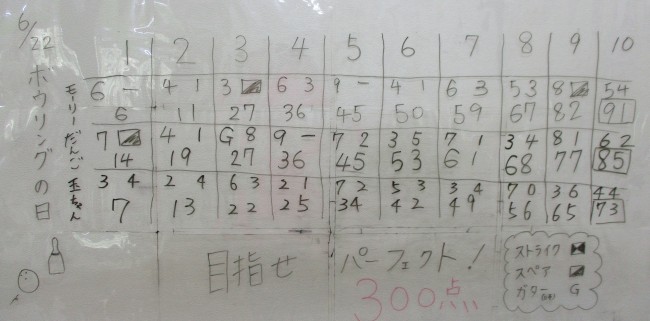 6/22 ボウリングの日
1 2 3 4 5 6 7 8 9 10
モーリー
6 - 4 1 3 ◢ 6 3 9 - 4 1 6 3 5 3 8 ◢ 5 4
6 11 27 36 45 50 59 67 82 91
だんご
7 ◢ 4 1 G 8 9 - 7 2 3 5 7 1 3 4 8 1 6 2
14 19 27 36 45 53 61 68 77 85
玉ちゃん
3 4 2 4 6 3 2 1 7 2 5 3 3 4 7 0 3 6 4 4
7 13 22 25 34 42 49 56 65 73
目指せ パーフェクト!
300点
ストライク ⧓
スペア ◢
ガター G